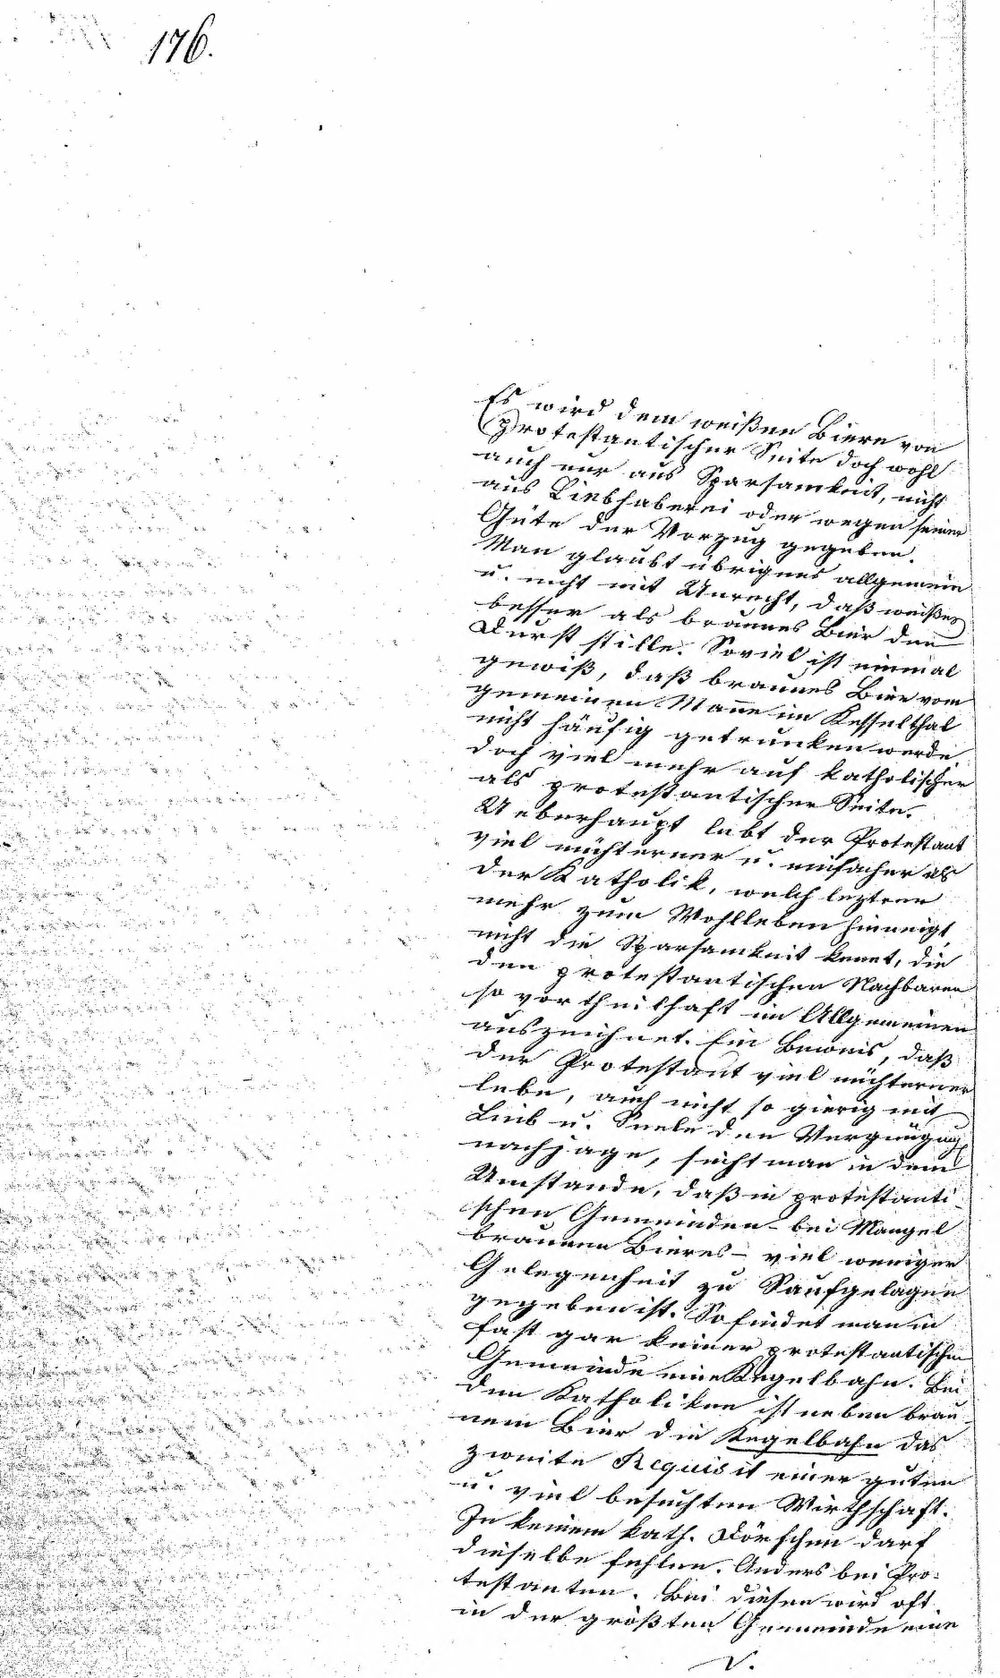 176.
Es wird dem weißen Biere von
protestantischer Seite doch wohl
auch nur aus Sparsamkeit, nicht
aus Liebhaberei oder wegen seiner
Güte der Vorzug gegeben.
Man glaubt übrigens allgemein
u. nicht mit Unrecht, daß weißes
besser als braunes Bier den
Durst stille. Soviel ist einmal
gewiß, daß braunes Bier vom
gemeinen Mann im Kesselthal
nicht häufig getrunken werde
doch viel mehr auf katholischer
als protestantischer Seite.
Ueberhaupt lebt der Protestant
viel nüchterner u. einfacher als
der Katholik, welch leztrer
mehr zum Wohlleben hinneigt
nicht die Sparsamkeit kennt, die
den protestantischen Nachbaren
so vortheilhaft im Allgemeinen
auszeichnet. Ein Beweis, daß
der Protestant viel nüchterner
lebe, auch nicht so gierig mit
Leib u. Seele den Vergnügung
nachjage, sieht man in dem
Umstande, daß in protestanti-
schen Gemeinden - bei Mangel
braunen Bieres - viel weniger
Gelegenheit zu Saufgelagen
gegeben ist. So findet man in
fast gar keiner protestantischen
Gemeinde eine Kegelbahn. Bei
den Katholiken ist neben brau-
nem Bier die Kegelbahn das
zweite Requisit einer guten
u. viel besuchten Wirthschaft.
In keinem kath. Dörfchen darf
dieselbe fehlen. Anders bei Pro-
testanten. Bei diesen wird oft
in der größten Gemeinde eine